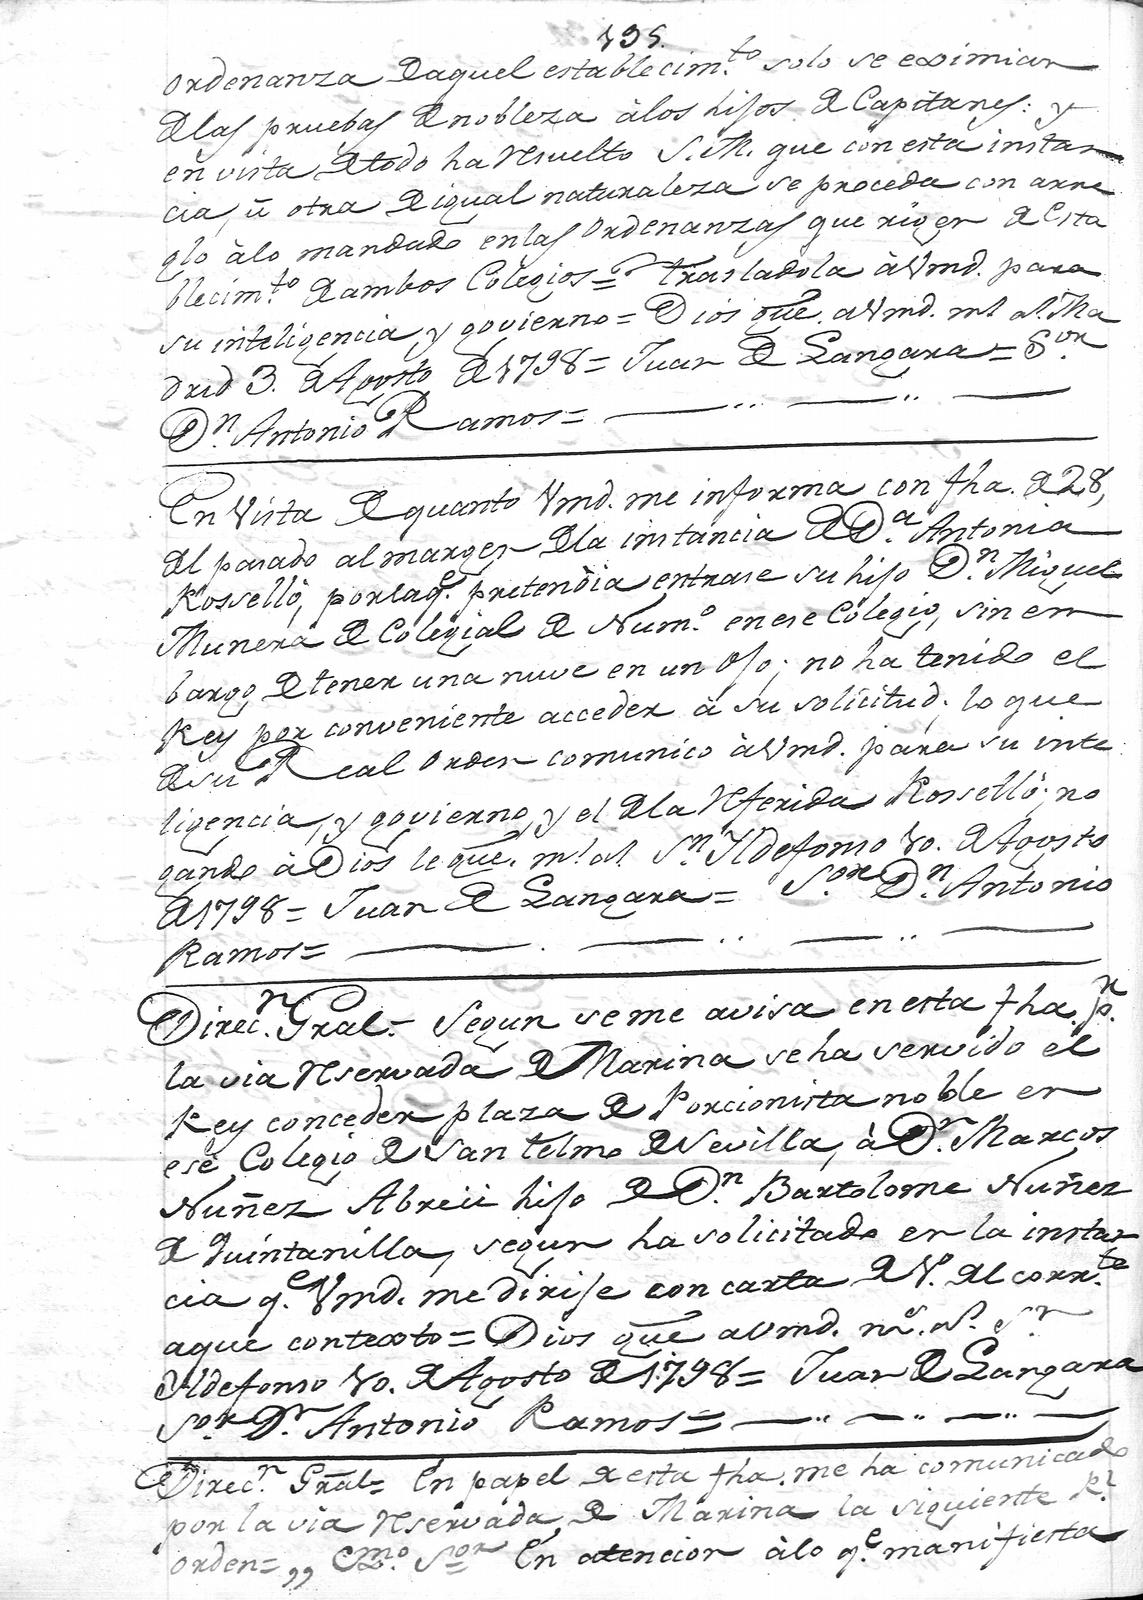 195.
ordenanza de aquel establecim.to solo se eximian
de las pruebas de nobleza à los hijos de Capitanes: y
en vista de todo ha resuelto S.M. que con esta instan
cia, ù otra de igual naturaleza se proceda con arre
glo à lo mandado en las Ordenanzas que rigen de Esta
blecim.to de ambos Colegios = Trasladola à Vmd. para
su inteligencia, y govierno = Dios gue. a Vmd. ms. as. Ma
drid 3. de Agosto de 1798 = Juan de Langara = S.or
D.n Antonio Ramos =
En Vista de quanto Vmd. me informa con fha. de 28,
del pasado al margen de la instancia de D.a Antonia
Rosselló, por la q.e pretendia entrase su hijo D.n Miguel
Munera de Colegial de Num.o en ese Colegio, sin em
bargo de tener una nuve en un Ojo; no ha tenido el
Rey por conveniente acceder à su solicitud; lo que
de su Real Orden comunico à Vmd. para su inte
ligencia, y govierno, y el de la referida Rosselló; ro
gando à Dios le gue. m.s a.s S.n Ildefonso 10. de Agosto
de 1798 = Juan de Langara = S.or D.n Antonio
Ramos =
Direc.n Gral. = Segun se me avisa en esta fha. p.r
la via reservada de Marina se ha servido el
Rey conceder plaza de Porcionista noble en
ese Colegio de San Telmo de Sevilla, à D.n Marcos
Nuñez Abreü hijo de D.n Bartolome Nuñez
de Quintanilla, segun ha solicitado en la instan
cia q.e Vmd. me dirije con carta de 1.º del corr.te
a que contexto = Dios gue. a Vmd. m.s a.s S.n
Ildefonso 10. de Agosto de 1798 = Juan de Langara
S.or D.n Antonio Ramos =
Direc.n Gral = En papel de esta fha. me ha comunicado
por la via reservada de Marina la siguiente R.l
orden = ,, Exmo. S.or = En atencion à lo q.e manifiesta